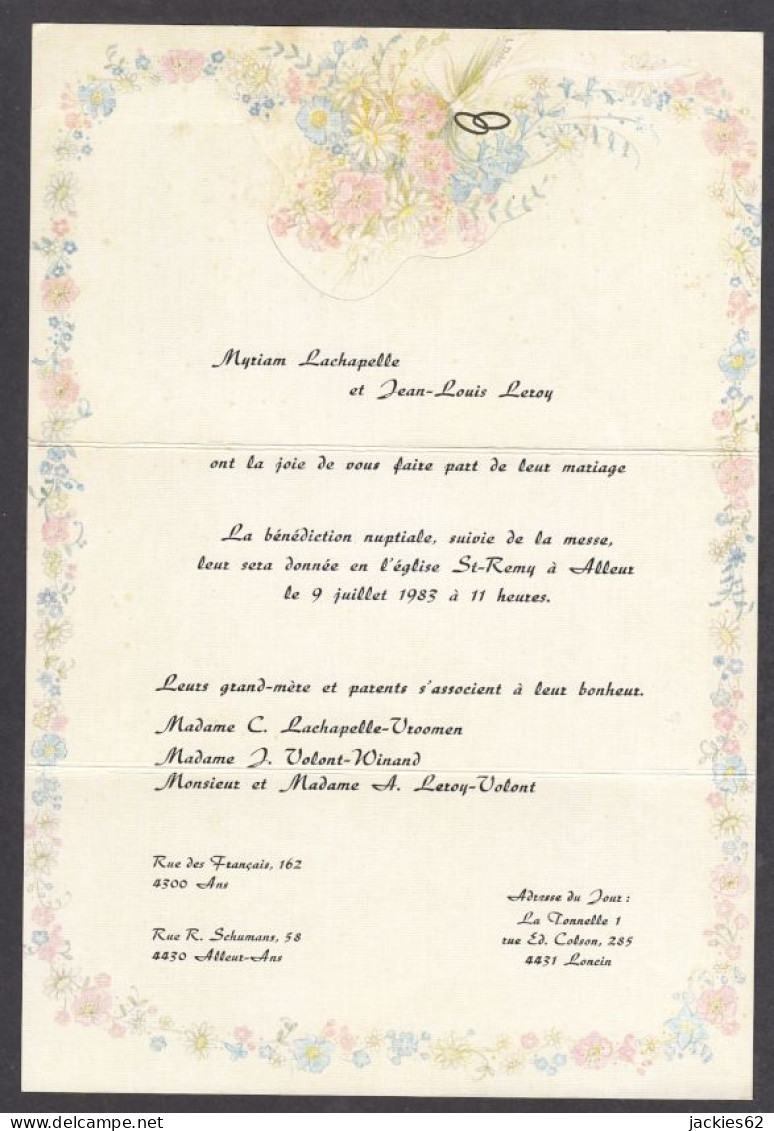 Myriam Lachapelle
et Jean-Louis Leroy
ont la joie de vous faire part de leur mariage
La bénédiction nuptiale, suivie de la messe,
leur sera donnée en l'église St-Remy à Alleur
le 9 juillet 1983 à 11 heures.
Leurs grand-mère et parents s'associent à leur bonheur.
Madame C. Lachapelle-Vroomen
Madame J. Volont-Winand
Monsieur et Madame A. Leroy-Volont
Rue des Français, 162
4300 Ans
Rue R. Schumans, 58
4430 Alleur-Ans
Adresse du Jour :
La Tonnelle 1
rue Ed. Colson, 285
4431 Loncin
jackies62